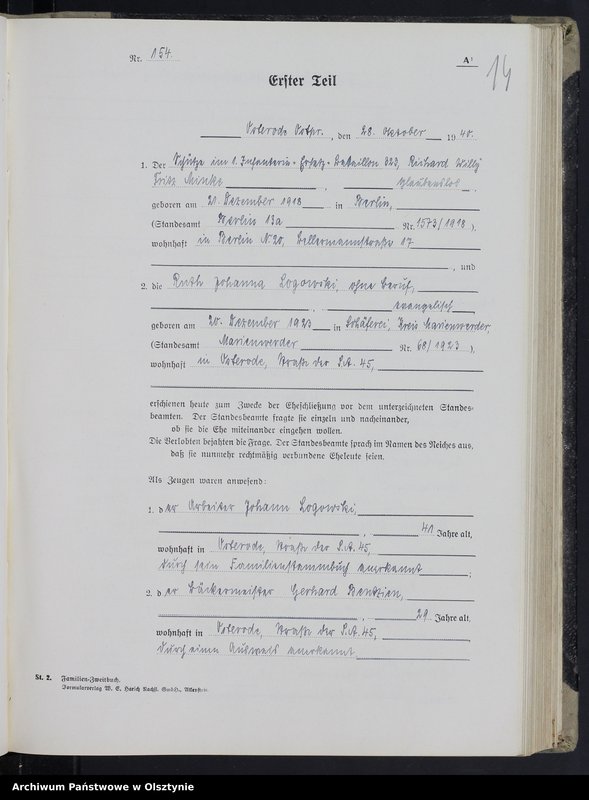 Nr. 154.
A¹
14
Erster Teil
Osterode Ostpr., den 28. Oktober 1940.
1. Der Schütze im 1. Infanterie-Ersatz-Bataillon 323, Richard Willy
Fritz Minke, glaubenslos,
geboren am 21. Dezember 1918 in Berlin,
(Standesamt Berlin 13a Nr. 1573/1918),
wohnhaft in Berlin N 20, Bellermannstraße 17
, und
2. die Ruth Johanna Logowski, ohne Beruf,
, evangelisch,
geboren am 20. Dezember 1923 in Schäferei, Kreis Marienwerder
(Standesamt Marienwerder Nr. 68/1923),
wohnhaft in Osterode, Straße der S.A. 45,
erschienen heute zum Zwecke der Eheschließung vor dem unterzeichneten Standes-
beamten. Der Standesbeamte fragte sie einzeln und nacheinander,
ob sie die Ehe miteinander eingehen wollen.
Die Verlobten bejahten die Frage. Der Standesbeamte sprach im Namen des Reiches aus,
daß sie nunmehr rechtmäßig verbundene Eheleute seien.
Als Zeugen waren anwesend:
1. der Arbeiter Johann Logowski,
, 41 Jahre alt,
wohnhaft in Osterode, Straße der S.A. 45,
durch sein Familienstammbuch anerkannt;
2. der Bäckermeister Gerhard Bentzien,
, 29 Jahre alt,
wohnhaft in Osterode, Straße der S.A. 45,
durch einen Ausweis anerkannt
St. 2. Familien-Zweitbuch.
Formularverlag W. E. Harich Nachfl. GmbH., Allenstein.
Archiwum Państwowe w Olsztynie